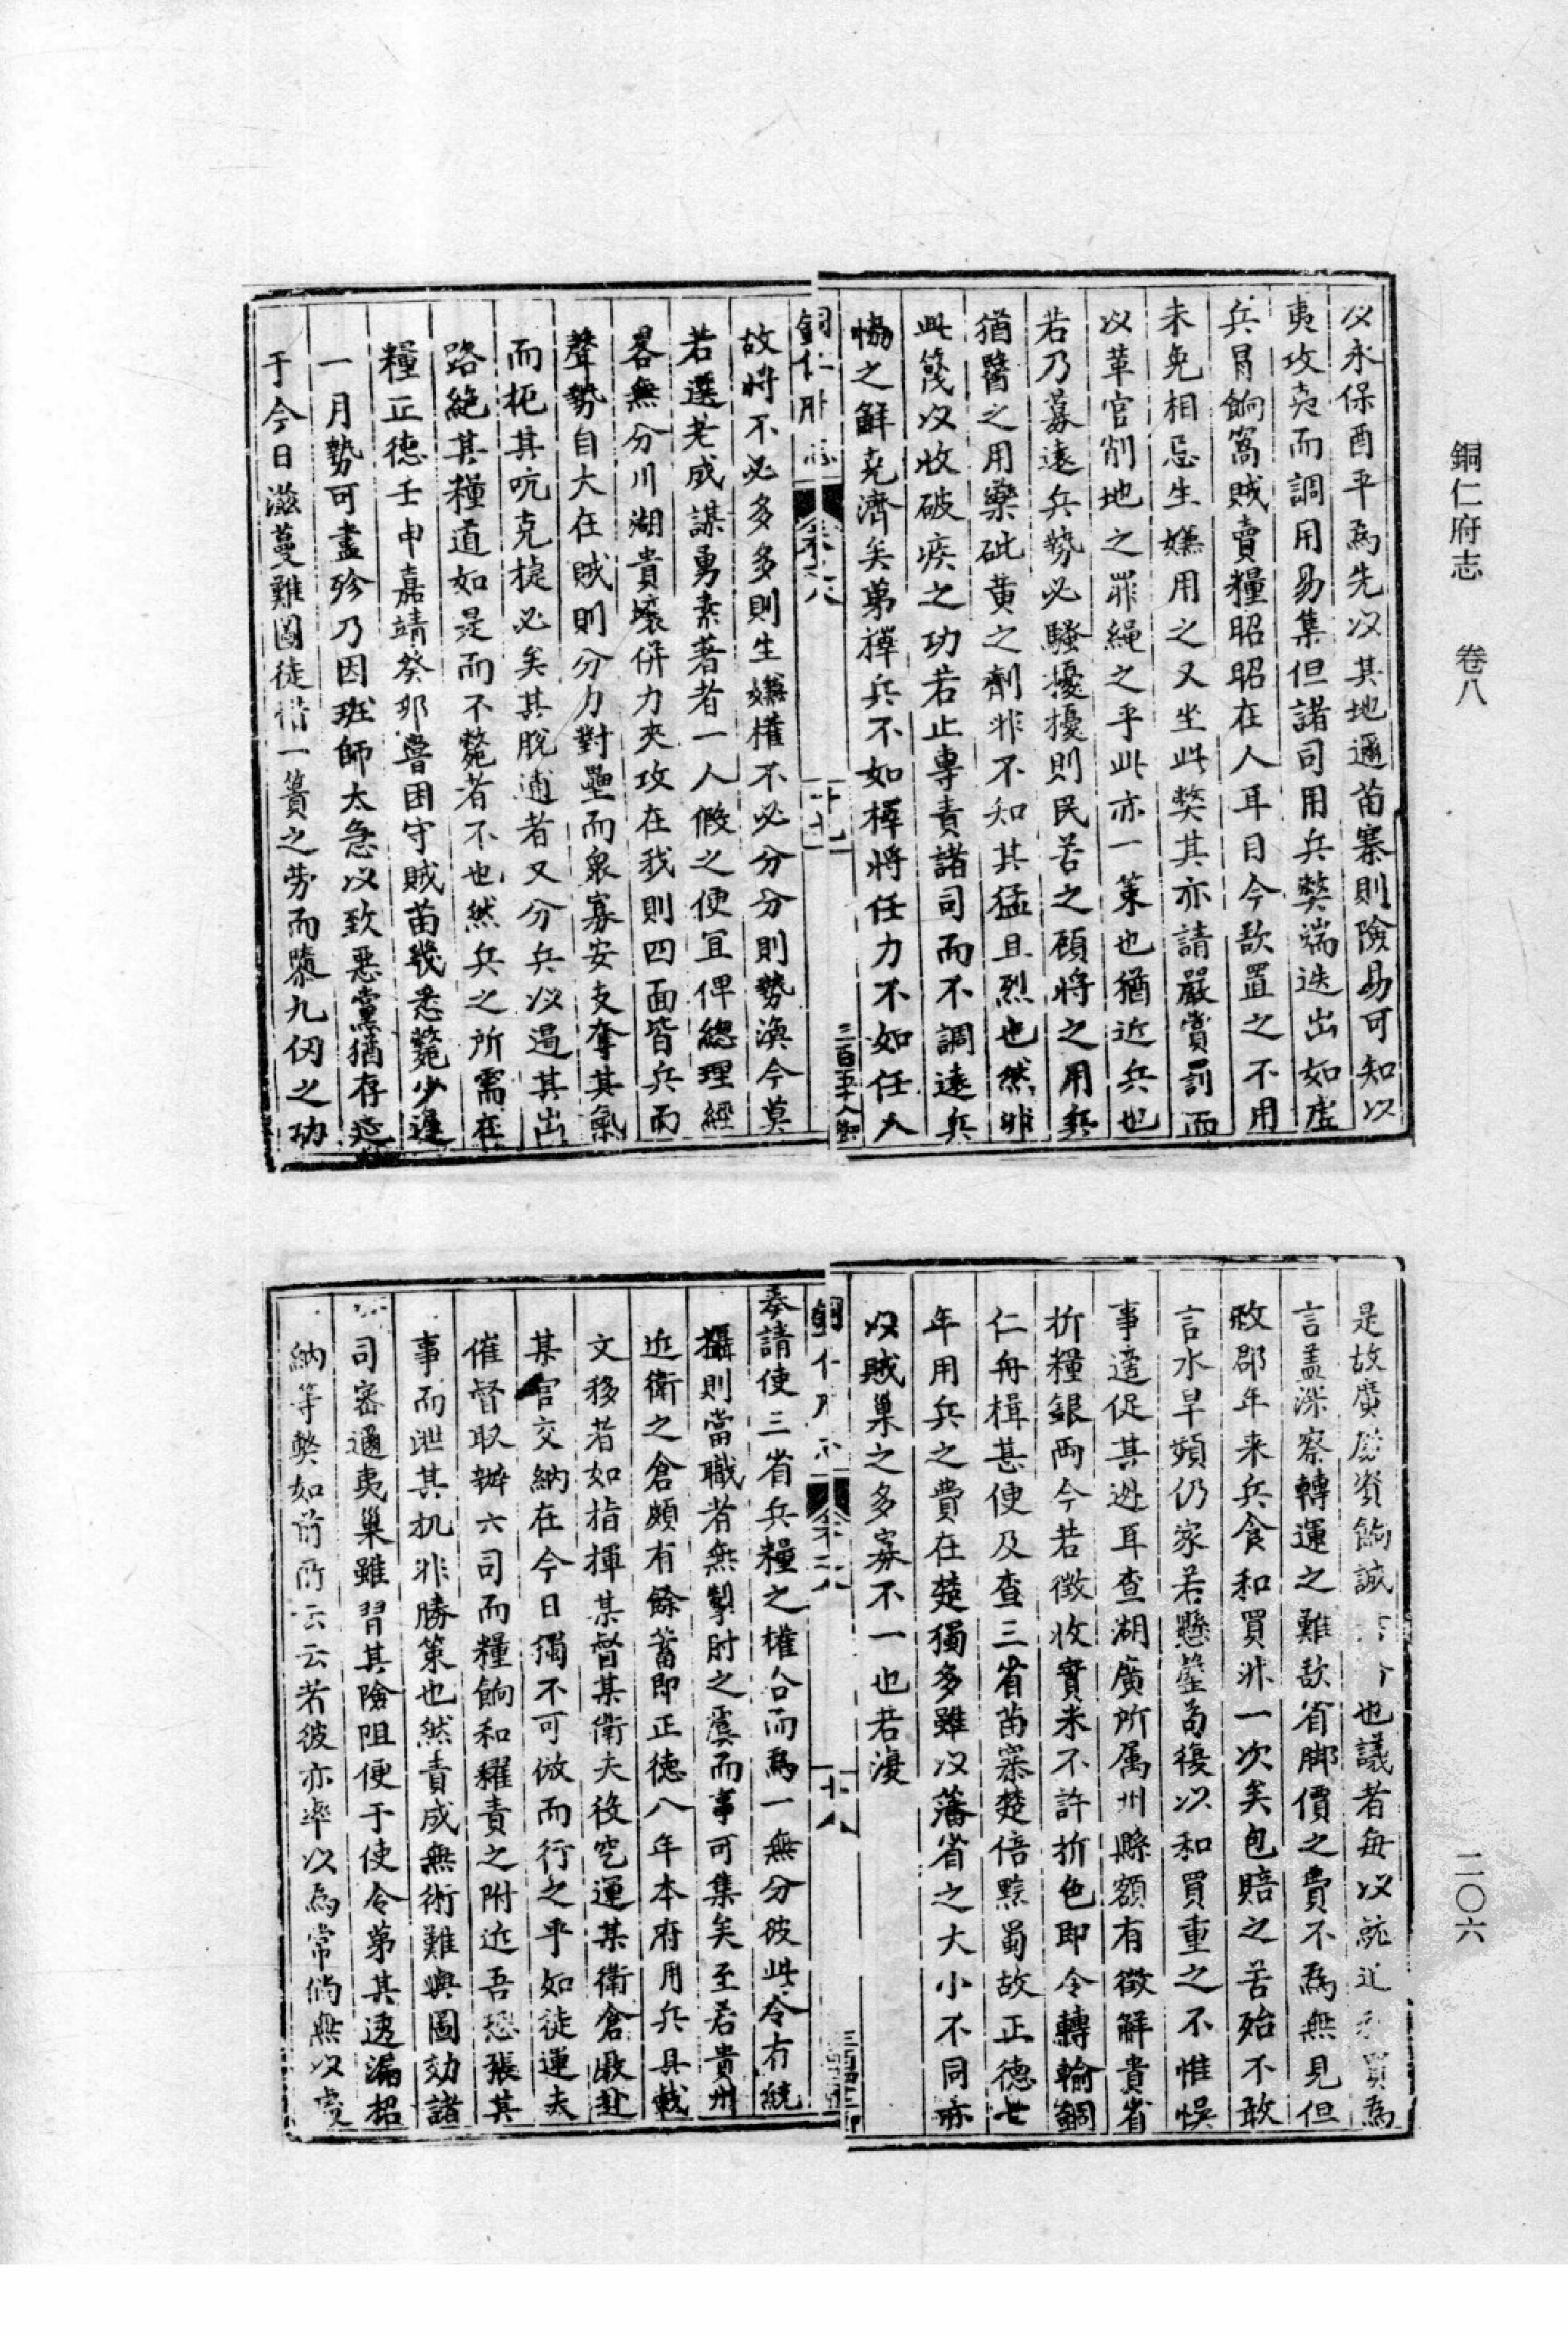 銅仁府志　卷八
二〇六
以永保酉平為先以其地邇苗寨則險易可知以
夷攻夷而調用易集但諸司用兵獘端迭出如虛
兵冐餉窩賊賣糧昭昭在人耳目今欲置之不用
未免相忌生嫌用之又坐此獘其亦請嚴賞罰而
以革官削地之罪繩之乎此亦一策也猶近兵也
若乃募遠兵勢必騷擾擾則民苦之顧將之用兵
猶醫之用藥砒黄之劑非不知其猛且烈也然非
此箋以收破疾之功若止專責諸司而不調遠兵
恊之鮮克濟矣第擇兵不如擇將任力不如任人
銅仁府志
卷之八
十七
故將不必多多則生嫌權不必分分則勢渙今莫
若選老成謀勇素著者一人假之便宜俾總理經
畧無分川湖貴壤併力夾攻在我則四面皆兵而
聲勢自大在賊則分力對壘而衆寡安支奪其氣
而扼其吭克捷必矣其脫逋者又分兵以遏其出
路絶其糧道如是而不斃者不也然兵之所需在
糧正德壬申嘉靖癸卯嘗困守賊苗幾悉斃少遲
一月勢可盡殄乃因班師太急以致惡黨猶存延
于今日滋蔓難圖徒惜一簣之勞而隳九仞之功
是故廣儲資餉誠 也議者每以就近和買為
言盖深察轉運之難欲省脚價之費不為無見但
敝郡年来兵食和買非一次矣包賠之苦殆不敢
言水旱頻仍家若懸罄苟復以和買重之不惟悞
事適促其逃耳查湖廣所属州縣額有徵解貴省
折糧銀兩今若徵收實米不許折色即令轉輸銅
仁舟楫甚便及查三省苗寨楚倍黔蜀故正德七
年用兵之費在楚獨多雖以藩省之大小不同亦
以賊巢之多寡不一也若復
銅仁府志
卷之八
十八
奏請使三省兵糧之權合而為一無分彼此令有統
攝則當職者無掣肘之虞而事可集矣至若貴州
近衛之倉頗有餘蓄即正德八年本府用兵具載
文移者如指揮某督某衛夫役空運某衛倉廒赴
某官交納在今日獨不可倣而行之乎如徒運夫
催督取辦六司而糧餉和糴責之附近吾恐張其
事而泄其机非勝策也然責成無術難與圖効諸
司密邇夷巢雖習其險阻便于使令第其透漏招
納等獘如前所云云者彼亦率以為常倘無以處